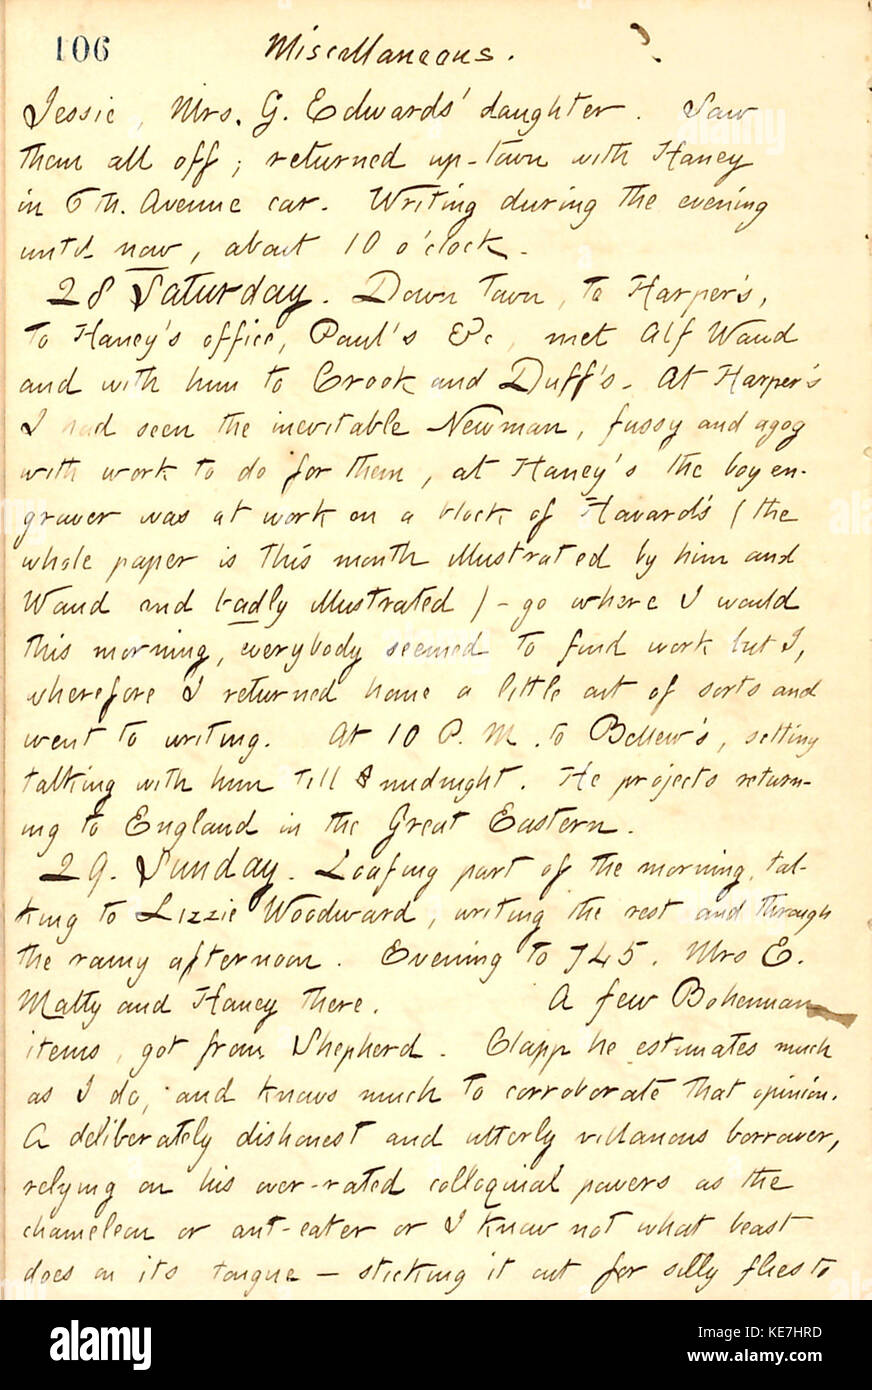 106 Miscellaneous.
Jessie, Mrs. G. Edwards' daughter. Saw
them all off; returned up-town with Haney
in 6th. Avenue car. Writing during the evening
until now, about 10 o'clock.
28 Saturday. Down town, to Harper's,
to Haney's office, Paul's &c, met Alf Waud
and with him to Crook and Duff's. At Harper's
I had seen the inevitable Newman, fussy and agog
with work to do for them, at Haney's the boy en-
graver was at work on a block of Havard's (the
whole paper is this month illustrated by him and
Waud and badly illustrated) - go where I would
this morning, everybody seemed to find work but I,
wherefore I returned home a little out of sorts and
went to writing. At 10 P. M. to Bellew's, setting
talking with him till midnight. He projects return-
ing to England in the Great Eastern.
29. Sunday. Loafing part of the morning, tal-
king to Lizzie Woodward, writing the rest and through
the rainy afternoon. Evening to 745. Mrs E.
Matty and Haney there. A few Bohemian
items, got from Shepherd. Clapp he estimates much
as I do, and knows much to corroborate that opinion.
A deliberately dishonest and utterly villanous borrower,
relying on his over-rated colloquial powers as the
chameleon or ant-eater or I know not what beast
does on its tongue — sticking it out for silly flies to
alamy
Image ID: KE7HRD
www.alamy.com